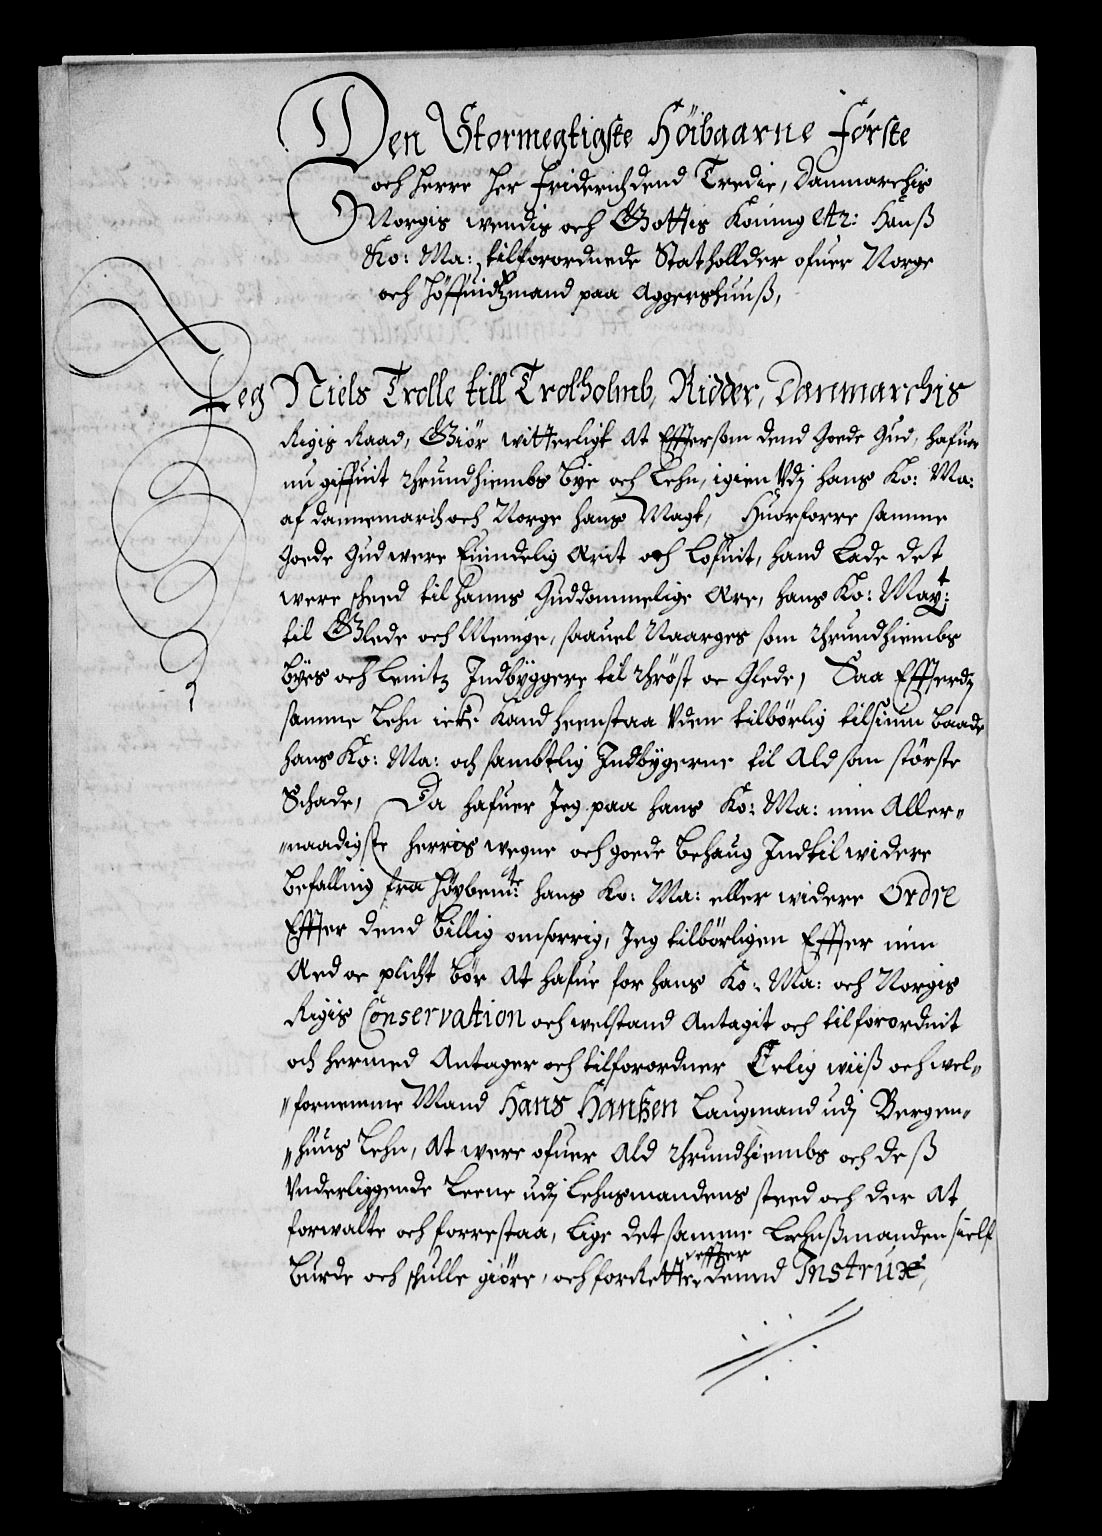 Den Stormegtigste Höibaarne Förste
och Herre Her Friderich dend Tredie, Danmarchis
Norgis wendis och Gottis Koning etc: Hanß
Ko: Ma: tilforordnede Statholder ofuer Norge
och Höffuidtzmand paa Aggershuuß,
Jeg Niels Trolle till Trolholmb, Ridder, Danmarchis
Rigis Raad, Giör witterligt At Effter som dend Goede Gud, hafuer
nu giffuit Thrundhiembs Bye och Lehn, igien Vdj hans Ko: Ma:
af Dannemarch och Norge hans Magt, Huorforre samme
Goede Gud were Euindelig Ærit och Lofuit, hand Lade det
were scheed til hanns Guddommelige Ære, hans Ko: Mayt:
til Glede och Meninge, saauel Naarges som Thrundhiembs
Byes och Lenitz Indbyggere til Thröst oc Glede, Saa Effterdj
samme Lehn icke Kand heenstaa Vden tilbörlig tilsiun baade
hans Ko: Ma: och sambtlig Indbygerne til Ald som störste
Schade, Da hafuer Jeg paa hans Ko: Ma: min Aller-
naadigste Herris wegne och goede Behaug Indtil widere
Befalling fra Höybemte: hans Ko: Ma: eller widere Ordre
Effter dend Billig omsorrig, Jeg tilbörligen Effter min
Æed oc plicht Bör At hafue for hans Ko: Ma: och Norgis
Rigis Conservation och welstand Antagit och tilforordnit
och hermed Antager och tilforordner Erlig wiiß och wel-
fornemme Mand Hans Hantzen Laugmand udj Bergen-
huus Lehn, At were ofuer Ald Thrundhiembs och deß
Vnderliggende Leene udj Lehnsmandens steed och der At
forwalte och forrestaa, Lige det samme Lehnßmanden sielf
effter
Burde och skulle giöre, och forRetter dennd Instrux,